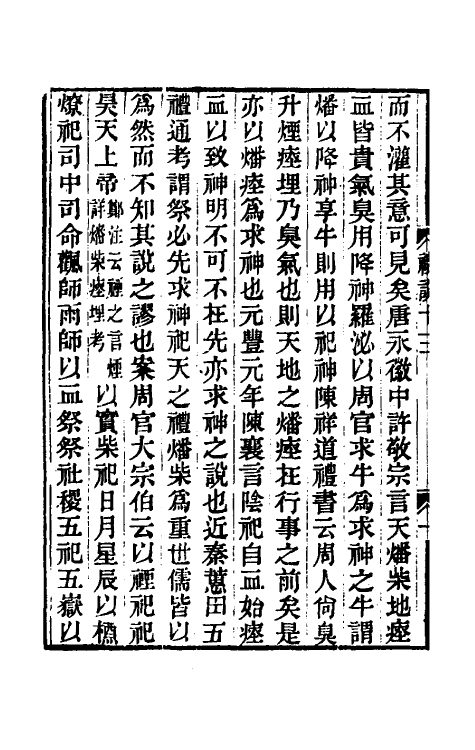 而不灌其意可見矣唐永徽中許敬宗言天燔柴地瘞
血皆貴氣臭用降神羅泌以周官求牛爲求神之牛謂
燔以降神享牛則用以祀神陳祥道禮書云周人尙臭
升煙瘞埋乃臭氣也則天地之燔瘞在行事之前矣是
亦以燔瘞爲求神也元豐元年陳襄言陰祀自血始瘞
血以致神明不可不在先亦求神之說也近秦蕙田五
禮通考謂祭必先求神祀天之禮燔柴爲重世儒皆以
爲然而不知其說之謬也案周官大宗伯云以禋祀祀
昊天上帝鄭注云禋之言煙詳燔柴瘞埋考以實柴祀日月星辰以槱
燎祀司中司命飌師雨師以血祭祭社稷五祀五嶽以
禮說十三